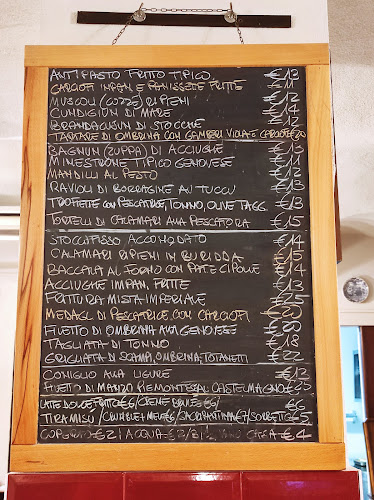 ANTIPASTO FRITTO TIPICO €13
CARCIOFI IMPAN. E PANISSETE FRITTE €11
MUSCOLI (COZZE) RIPIENI €12
CUNDIGIUN DI MARE €14
BRANDACUIUN DI STOCCHE €12
TARTARE DI OMBRINA CON GAMBERI VIOLA E CARCIOFI €20
BAGNUN (ZUPPA) DI ACCIUGHE €13
MINESTRONE TIPICO GENOVESE €11
MANDILLI AL PESTO €12
RAVIOLI DI BORRAGINE AL TUCCU €13
TROFIETTE CON PESCATRICE, TONNO, OLIVE TAGG. €13
TORTELLI DI CALAMARI ALLA PESCATORA €15
STOCCAFISSO ACCOMODATO €14
CALAMARI RIPIENI IN BURIDDA €15
BACCALÀ AL FORNO CON PAT. E CIPOLLE €14
ACCIUGHE IMPAN. FRITTE €13
FRITTURA MISTA IMPERIALE €25
MEDAGL. DI PESCATRICE CON CARCIOFI €20
FILETTO DI OMBRINA ALLA GENOVESE €20
TAGLIATA DI TONNO €18
GRIGLIATA DI SCAMPI, OMBRINA, TOTANETTI €22
CONIGLIO ALLA LIGURE €13
FILETTO DI MANZO PIEMONTESE AL CASTELMAGNO
LATTE DOLCE FRITTO €6/CREME BRULEE €6
TIRAMISU / CRUMBLE MELE €6/SACRIPANTINA €7/SORBETTO €5
COPERTO €2 ACQUA €2 CASA €4